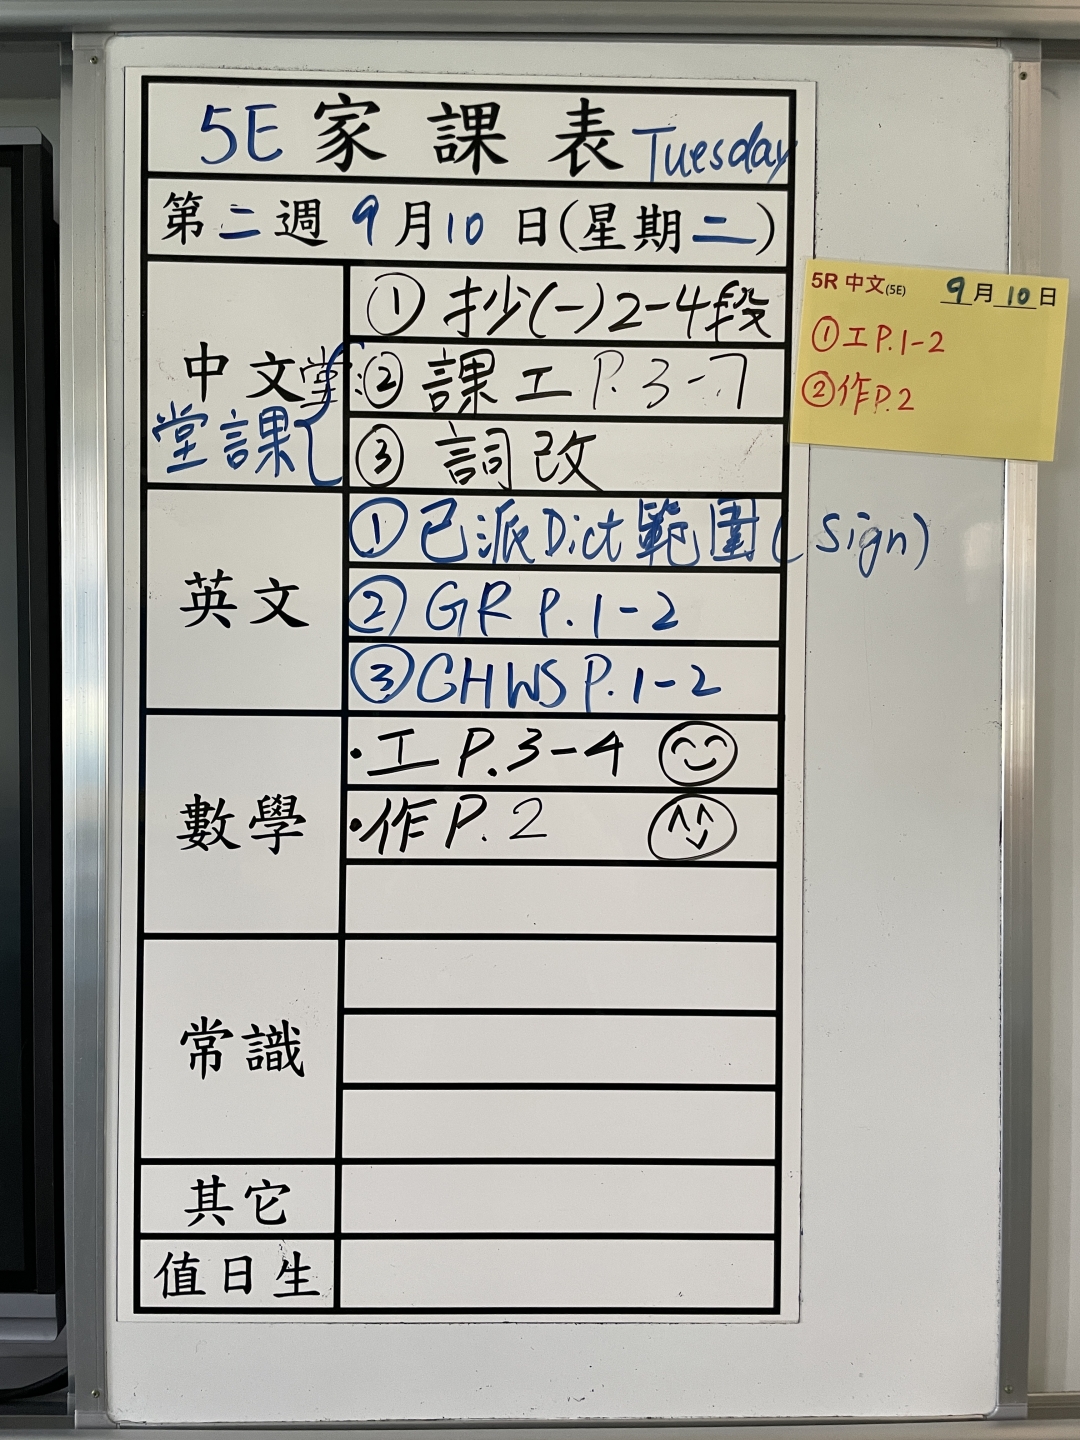 5E 家課表 Tuesday
第二週 9月10日(星期二)
中文
堂課
① 抄(一)2-4段
② 課工 P.3-7
③ 詞改
英文
① 已派Dict範圍(Sign)
② GR P.1-2
③ GHWS P.1-2
數學
·工 P.3-4
·作 P.2
常識
其它
值日生
5R 中文(5E) 9月10日
①工P.1-2
②作P.2